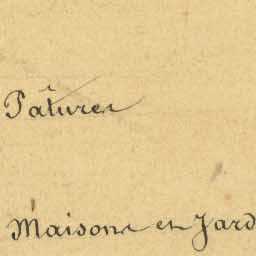 Pâtures
Maisons et Jard